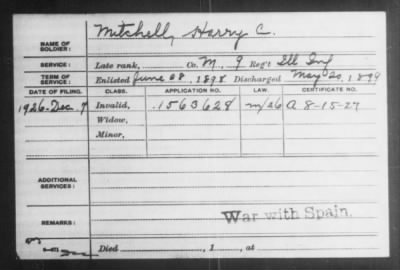 Mitchell, Harry C.
NAME OF SOLDIER:
SERVICE: Late rank, Co. M, 9 Reg't Ill Inf
TERM OF SERVICE: Enlisted June 28, 1898 Discharged May 20, 1899
DATE OF FILING. CLASS. APPLICATION NO. LAW. CERTIFICATE NO.
1926-Dec. 9 Invalid, 1563628 A 8-15-27
Widow,
Minor,
ADDITIONAL SERVICES:
REMARKS: War with Spain.
Died , 1 , at